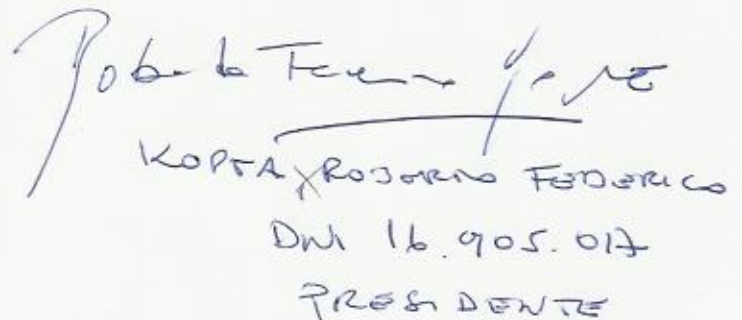 KOPTA, ROBERTO FEDERICO
DNI 16.905.017
PRESIDENTE